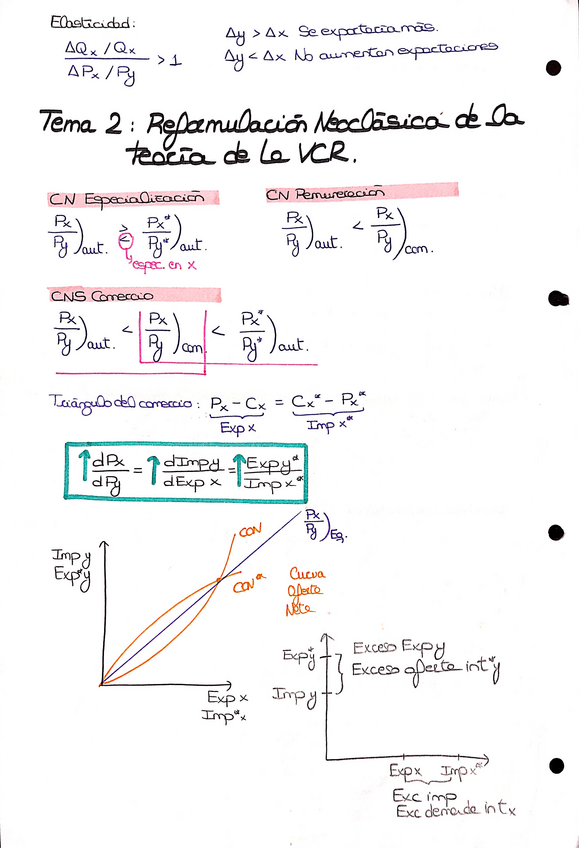 Elasticidad:
ΔQx / Qx
ΔPx / Py
> 1
Δy > Δx Se exportaría más.
Δy < Δx No aumentan exportaciones
Tema 2: Reformulación Neoclásica de la
teoría de la VCR.
CN Especialización
Px/Py)aut. ≷ Px*/Py*)aut.
espec. en x
CN Remuneración
Px/Py)aut. < Px/Py)com.
CNS Comercio
Px/Py)aut. < Px/Py)com. < Px*/Py*)aut.
Triángulo del comercio: Px - Cx = Cx* - Px*
Exp x Imp x*
↑ dPx/dPy = ↑ dImpy/dExp x = ↑ Expy*/Imp x*
Px/Py)Eq.
CON
CON*
Curva
Oferta
Neta
Imp y
Exp*y
Exp x
Imp*x
Expy*
Imp y
Exceso Exp y
Exceso oferta int*y
Expx Impx*
Exc imp
Exc demanda int x